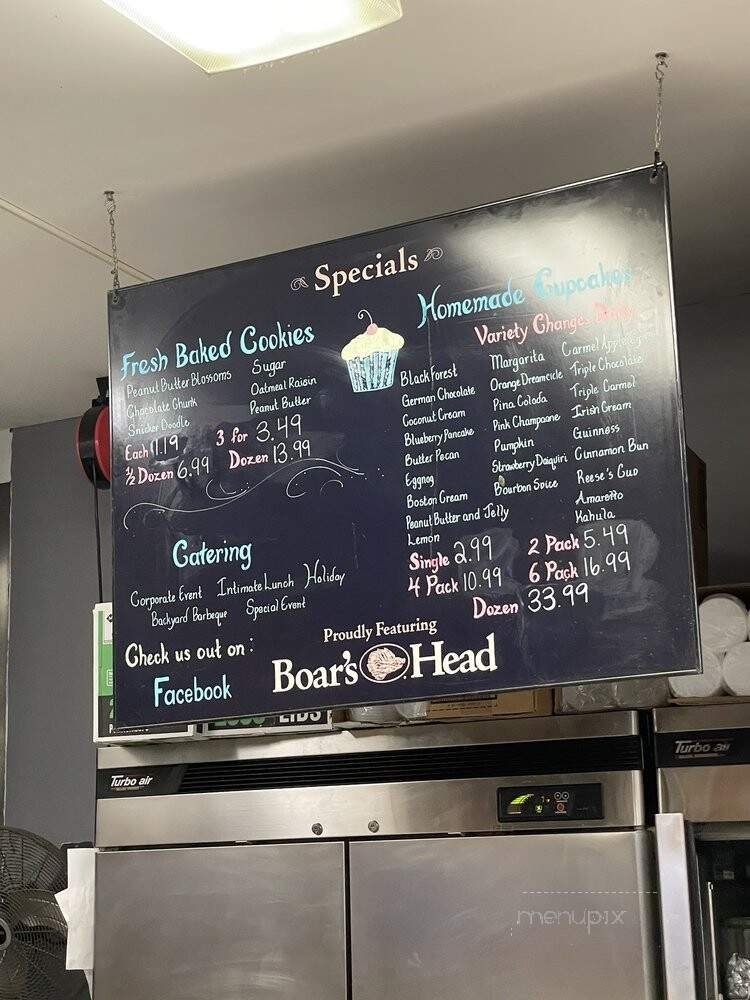 Specials
Fresh Baked Cookies
Peanut Butter Blossoms
Chocolate Chunk
Snicker Doodle
Sugar
Oatmeal Raisin
Peanut Butter
Each 1.19 3 for 3.49
½ Dozen 6.99 Dozen 13.99
Homemade Cupcakes
Variety Changes Daily
Black Forest
German Chocolate
Coconut Cream
Blueberry Pancake
Butter Pecan
Eggnog
Boston Cream
Peanut Butter and Jelly
Lemon
Margarita
Orange Dreamcicle
Pina Colada
Pink Champagne
Pumpkin
Strawberry Daiquiri
Bourbon Spice
Carmel Apple
Triple Chocolate
Triple Carmel
Irish Cream
Guinness
Cinnamon Bun
Reese's Cup
Amaretto
Kahula
Single 2.99 2 Pack 5.49
4 Pack 10.99 6 Pack 16.99
Dozen 33.99
Catering
Corporate Event Intimate Lunch Holiday
Backyard Barbeque Special Event
Check us out on:
Facebook
Proudly Featuring
Boar's Head
LIDS
Turbo air
Turbo air
menupix